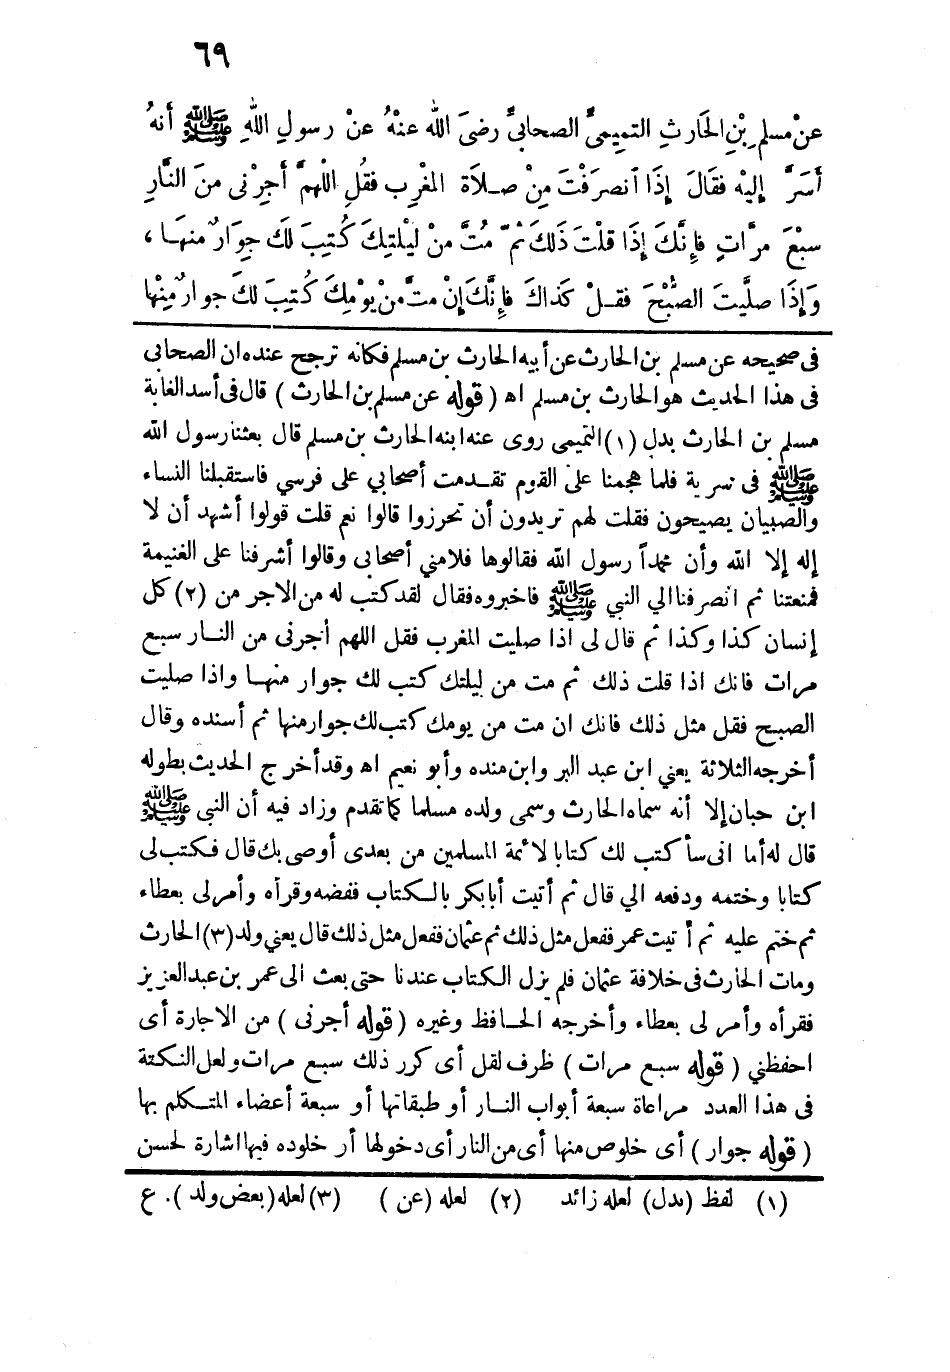 ٦٩
عنْ مسلمِ بْنِ الحَارثِ التميميِّ الصحابيِّ رضىَ اللهُ عنْهُ عنْ رسولِ اللهِ ﷺ أنهُ
أَسَرَّ إليْه فقَالَ إذَا آنصرَفْتَ مِنْ صلاَة المغْرِب فقُلِ اللّهمَّ أَجِرْنى منَ النَّارِ
سبْعَ مرَّاتٍ فإِنَّكَ إذَا قلْتَ ذَلكَ ثمّ مُتَّ منْ ليْلتِكَ كُتِبَ لكَ جِوَارٌ منهَا ،
وَإِذَا صلَّيتَ الصُّبْحَ فقلْ كَذاكَ فإِنَّكَ إنْ متَّ منْ يوْمِكَ كُتِبَ لكَ جوارٌ مِنْها
فى صحيحه عن مسلم بن الحارث عن أبيه الحارث بن مسلم فكانه ترجح عنده ان الصحابي
فى هذا الحديث هو الحارث بن مسلم اه ( قوله عن مسلم بن الحارث ) قال فى أسد الغابة
مسلم بن الحارث بدل (١) التميمى روى عنه ابنه الحارث بن مسلم قال بعثنا رسول الله
ﷺ فى سرية فلما هجمنا على القوم تقدمت أصحابي على فرسي فاستقبلنا النساء
والصبيان يصيحون فقلت لهم تريدون أن تحرزوا قالوا نعم قلت قولوا أشهد أن لا
إله إلا الله وأن محمداً رسول الله فقالوها فلامني أصحابى وقالوا أشرفنا على الغنيمة
فمنعتنا ثم انصرفنا الي النبي ﷺ فاخبروه فقال لقد كتب له من الاجر من (٢) كل
إنسان كذا وكذا ثم قال لى اذا صليت المغرب فقل اللهم أجرنى من النار سبع
مرات فانك اذا قلت ذلك ثم مت من ليلتك كتب لك جوار منها واذا صليت
الصبح فقل مثل ذلك فانك ان مت من يومك كتب لك جوار منها ثم أسنده وقال
أخرجه الثلاثة يعني ابن عبد البر وابن منده وأبو نعيم اه وقد أخرج الحديث بطوله
ابن حبان إلا أنه سماه الحارث وسمى ولده مسلما كما تقدم وزاد فيه أن النبى ﷺ
قال له أما انى سأ كتب لك كتابا لا ئمة المسلمين من بعدى أوصى بك قال فكتب لى
كتابا وختمه ودفعه الي قال ثم أتيت أبا بكر بالكتاب ففضه وقرأه وأمر لى بعطاء
ثم ختم عليه ثم أتيت عمر ففعل مثل ذلك ثم عثمان ففعل مثل ذلك قال يعني ولد (٣) الحارث
ومات الحارث فى خلافة عثمان فلم يزل الكتاب عندنا حتى بعث الى عمر بن عبد العزيز
فقرأه وأمر لى بعطاء وأخرجه الحافظ وغيره ( قوله أجرنى ) من الاجارة أى
احفظني ( قوله سبع مرات ) ظرف لقل أى كرر ذلك سبع مرات ولعل النكتة
فى هذا العدد مراعاة سبعة أبواب النار أو طبقاتها أو سبعة أعضاء المتكلم بها
( قوله جوار ) أى خلوص منها أى من النار أى دخولها أر خلوده فيها اشارة لحسن
(١) لفظ (بدل) لعله زائد (٢) لعله (عن ) (٣) لعله (بعض ولد ). ع